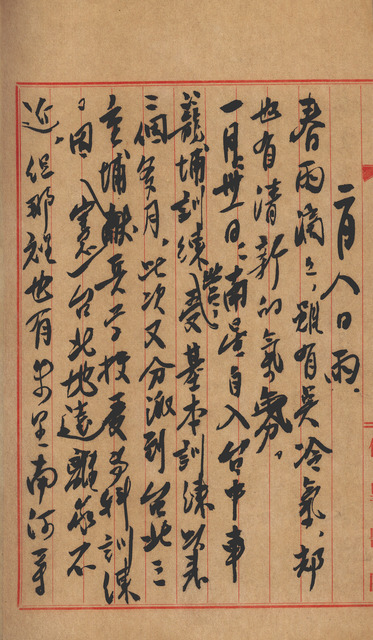 二月八日雨.
春雨滴々,雖有冷氣,却
也有清新的氣氛,
一月卅一日:南星自入台中車
籠埔訓練營受基本訓練以來
二個多月,此次又分派到台北三
重埔兵学校受訓練
。因台北地遠離家不
近,但那也有南河等